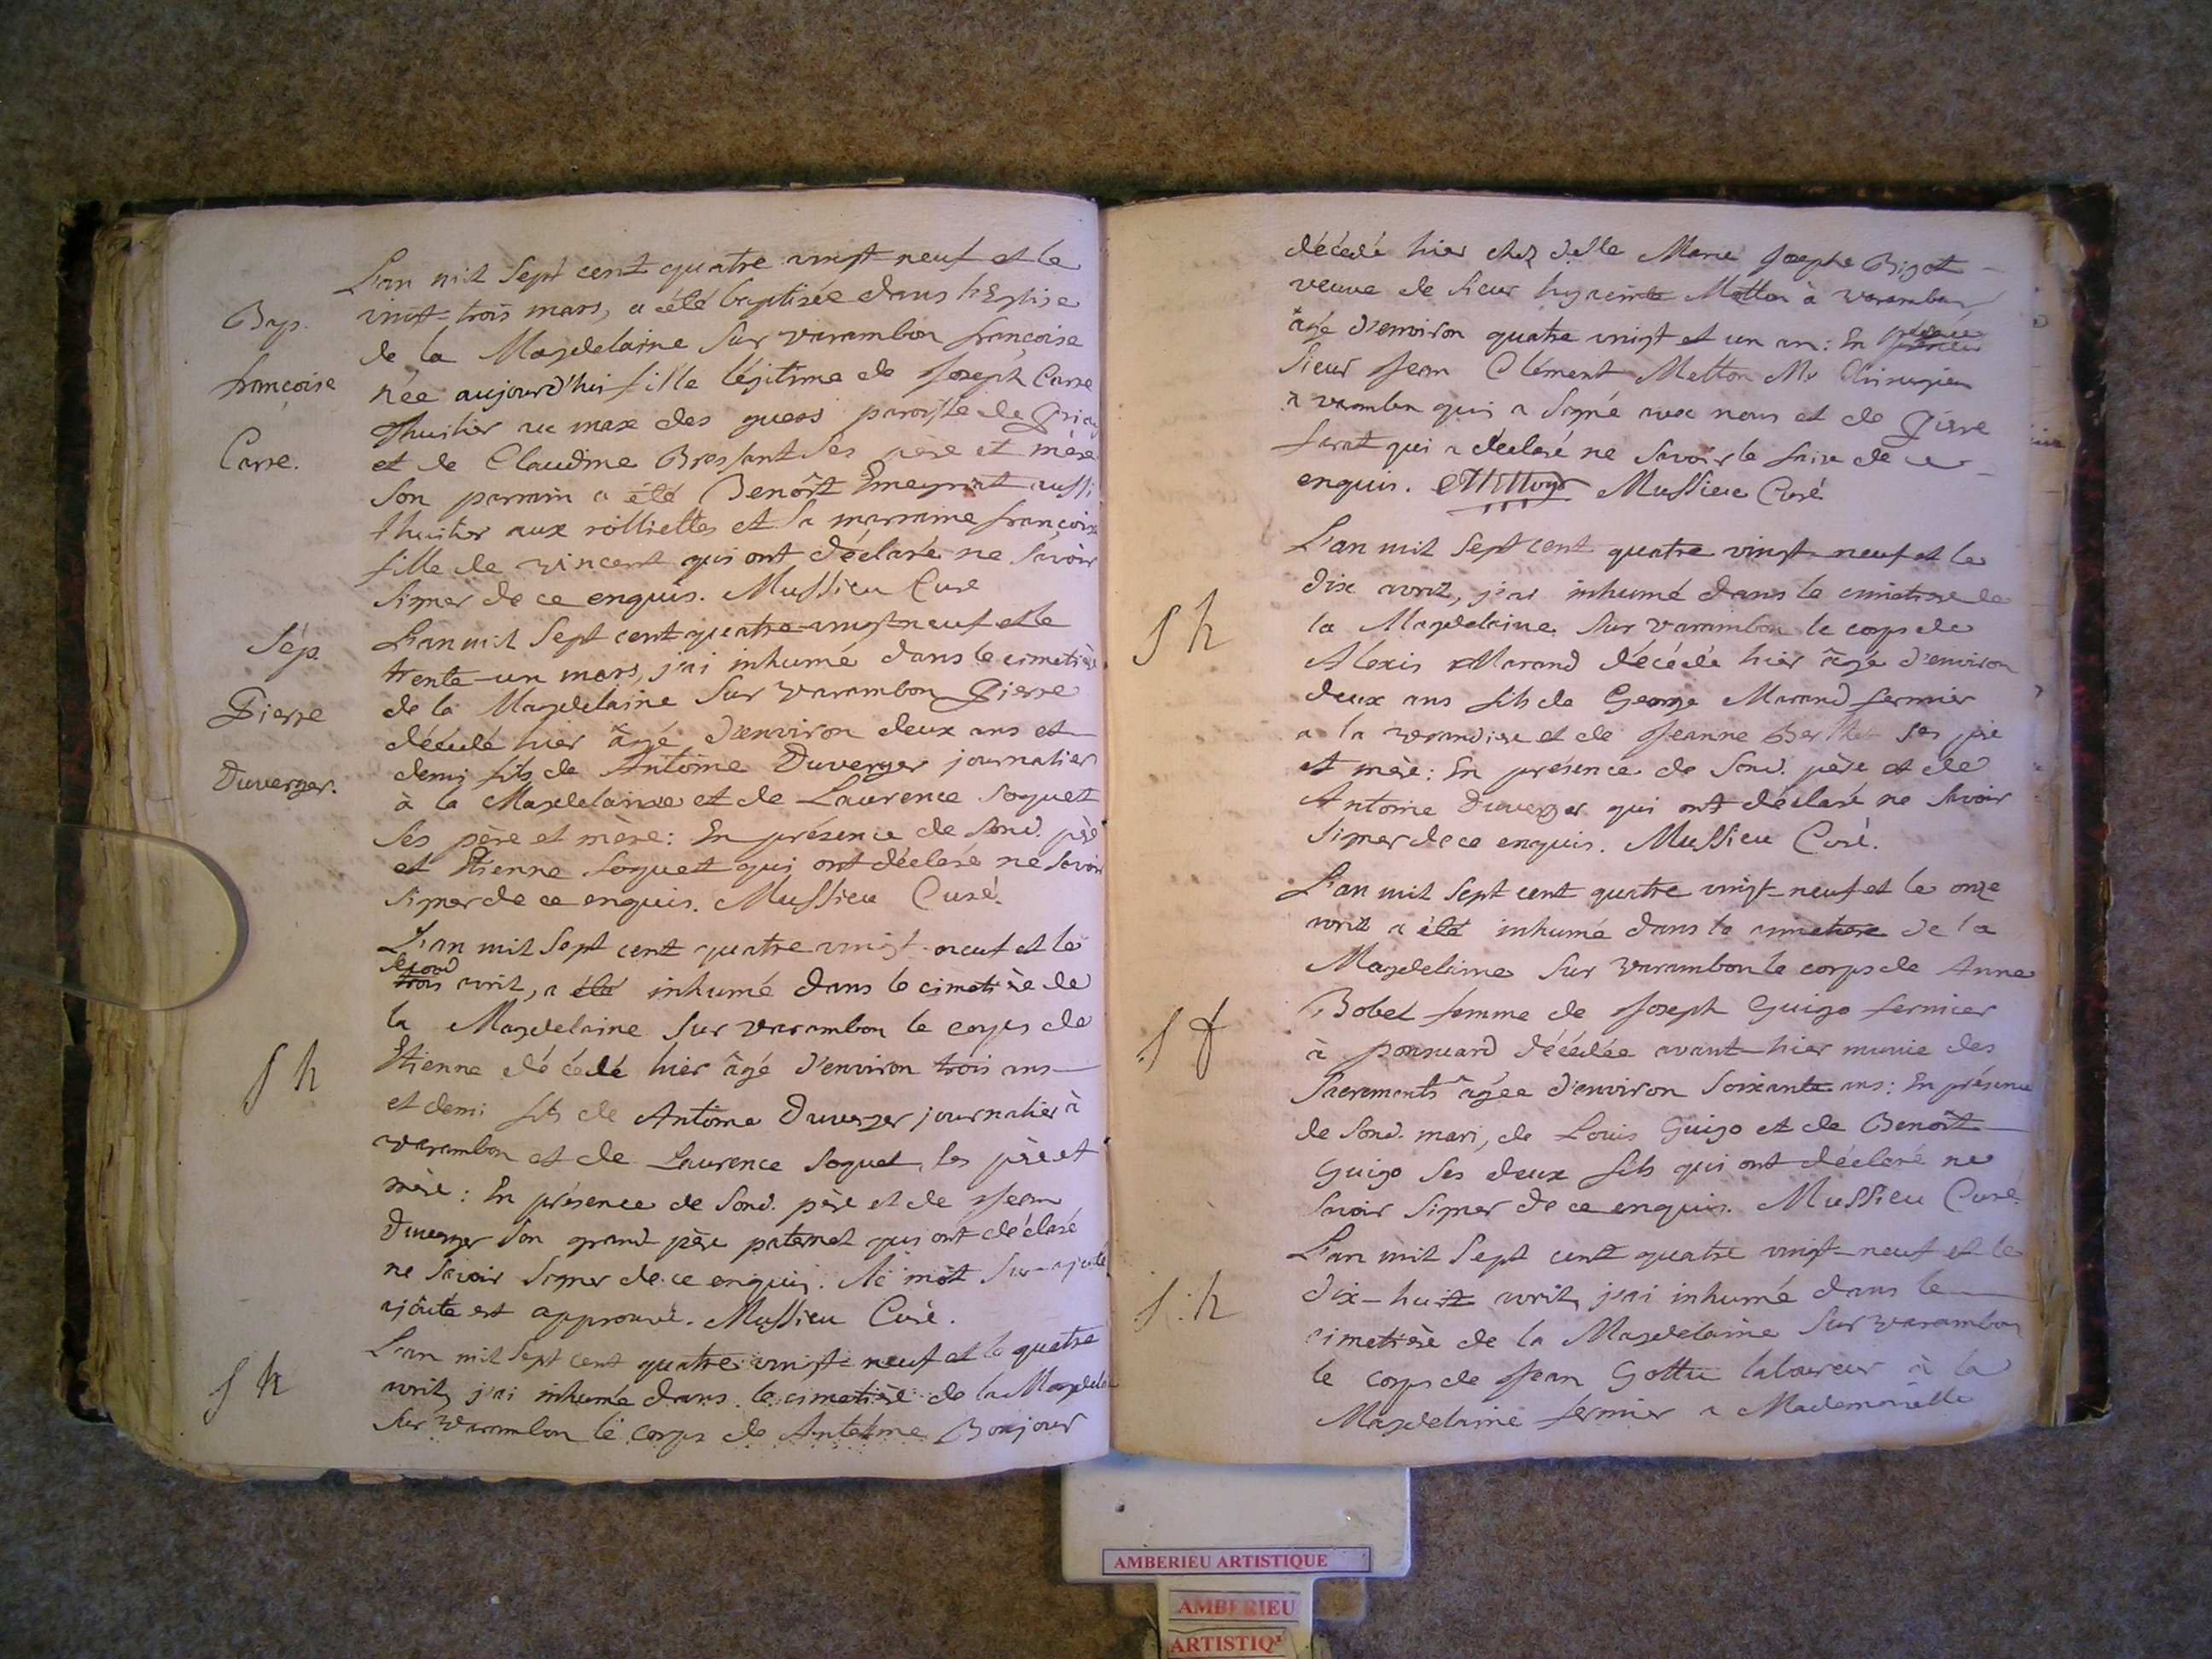 L'an mil Sept cent quatre vingt neuf et le
Bap. vingt-trois mars, a été baptisée dans l'Eglise
de la Magdelaine Sur varambon françoise
françoise née aujourd'hui fille légitime de Joseph Carre
thuilier au max des guers paroisse de
Carre. et de Claudine Brossant Ses père et mère
Son parrain a été Benôit Emeyriat aussi
thuilier aux rollietes et Sa marraine françoise
fille de vincent qui ont déclaré ne Savoir
Signer de ce enquis. Mussieu Curé
Sép. L'an mil Sept cent quatre vingt neuf et le
trente-un mars, j'ai inhumé dans le cimetière
Pierre de la Magdelaine Sur varambon Pierre
décédé hier âgé d'environ deux ans et
Duverger. demi fils de Antoine Duverger journalier
à la Magdelainne et de Laurence Soguet
Ses père et mère: En présence de Sond. père
et Etienne Soguet qui ont déclaré ne Savoir
Signer de ce enquis. Mussieu Curé.
L'an mil Sept cent quatre vingt neuf et le
Second
trois avril, a été inhumé dans le cimetière de
la Magdelaine Sur varambon le corps de
S h Etienne décédé hier âgé d'environ trois ans
et demi fils de Antoine Duverger journalier à
varambon et de Laurence Soguet, Ses père et
mère: En présence de Sond. père et de Jean
Duverger Son grand père paternel qui ont déclaré
ne Savoir Signer de ce enquis. le mot Sur-ajouté
ajouté est approuvé. Mussieu Curé.
L'an mil Sept cent quatre vingt neuf et le quatre
S h avril, j'ai inhumé dans le cimetière de la Magdelai
Sur varambon le corps de Antelme Bonjour
décédé hier chez delle Marie Josephe Bigot
veuve de Sieur hyacinte Metton à varambon
âgé d'environ quatre vingt et un an: En présence
Sieur Jean Clément Metton Mr Chirurgien
à varambon qui a Signé avec nous et de Pierre
ferat qui a déclaré ne Savoir le faire de ce
enquis. Mussieu Curé
L'an mil Sept cent quatre vingt-neuf et le
dix avril, j'ai inhumé dans le cimetiere de
S h la Magdelaine Sur varambon le corps de
Alexis Marand décédé hier âgé d'environ
deux ans fils de George Marand fermier
a la verandiere et de Jeanne Berthet Ses père
et mère: En présence de Sond. père et de
Antoine Duverger qui ont déclaré ne Savoir
Signer de ce enquis. Mussieu Curé.
L'an mil Sept cent quatre vingt-neuf et le onze
avril a été inhumé dans le cimetiere de la
Magdelaine Sur varambon le corps de Anne
S f Bobel femme de Joseph Guigo fermier
à ponsuard décédée avant-hier munie des
Sacrements âgée d'environ Soixante ans: En présence
de Sond. mari, de Louis Guigo et de Benôit
Guigo Ses deux fils qui ont déclaré ne
Savoir Signer de ce enquis. Mussieu Curé.
L'an mil Sept cent quatre vingt-neuf et le
S. h dix-huit avril, j'ai inhumé dans le
cimetière de la Magdelaine Sur varambon
le corps de Jean Gottu laboureur à la
Magdelaine fermier a Mademoiselle
AMBERIEU ARTISTIQUE
AMBERIEU
ARTISTIQ